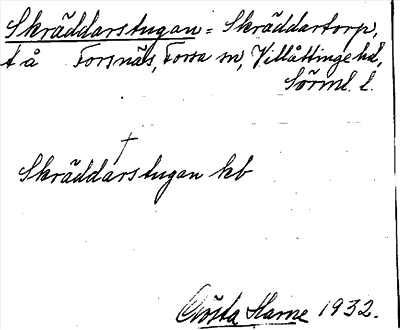 Skräddarstugan = Skräddartorp,
t å Forsnäs, Forsa sn, Villåttinge hd,
Sörml. l.
†
Skräddarstugan kb
Gösta Harne 1932.